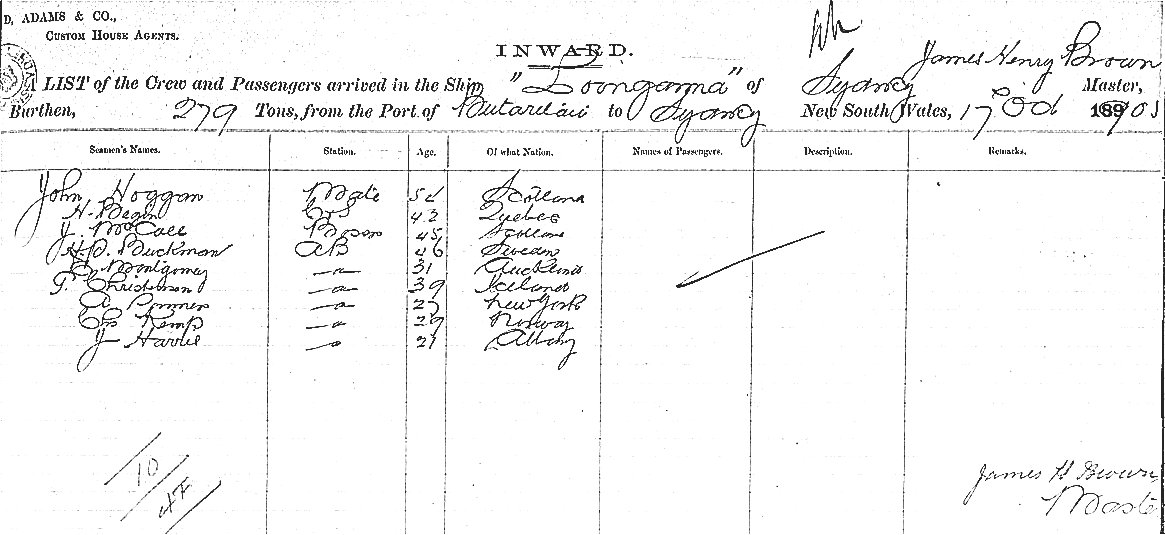 D. ADAMS & CO.,
CUSTOM HOUSE AGENTS.
INWARD.
A LIST of the Crew and Passengers arrived in the Ship "Loongana" of Sydney James Henry Brown Master,
Burthen, 279 Tons, from the Port of to Sydney New South Wales, 17 Oct 1901
Seamen's Names. Station. Age. Of what Nation. Names of Passengers. Description. Remarks.
John Hoggan Mate 52 Scotland
H. 42 Quebec
J. McCall Bosun 45 Scotland
H.D. Buckman AB 46 Sweden
Montgomery 31 Auckland
P. Christenson 39 Iceland
A 27 New York
Chs Kemp 29 Norway
J Harvie 21 Albany
10
James H Brown
Master